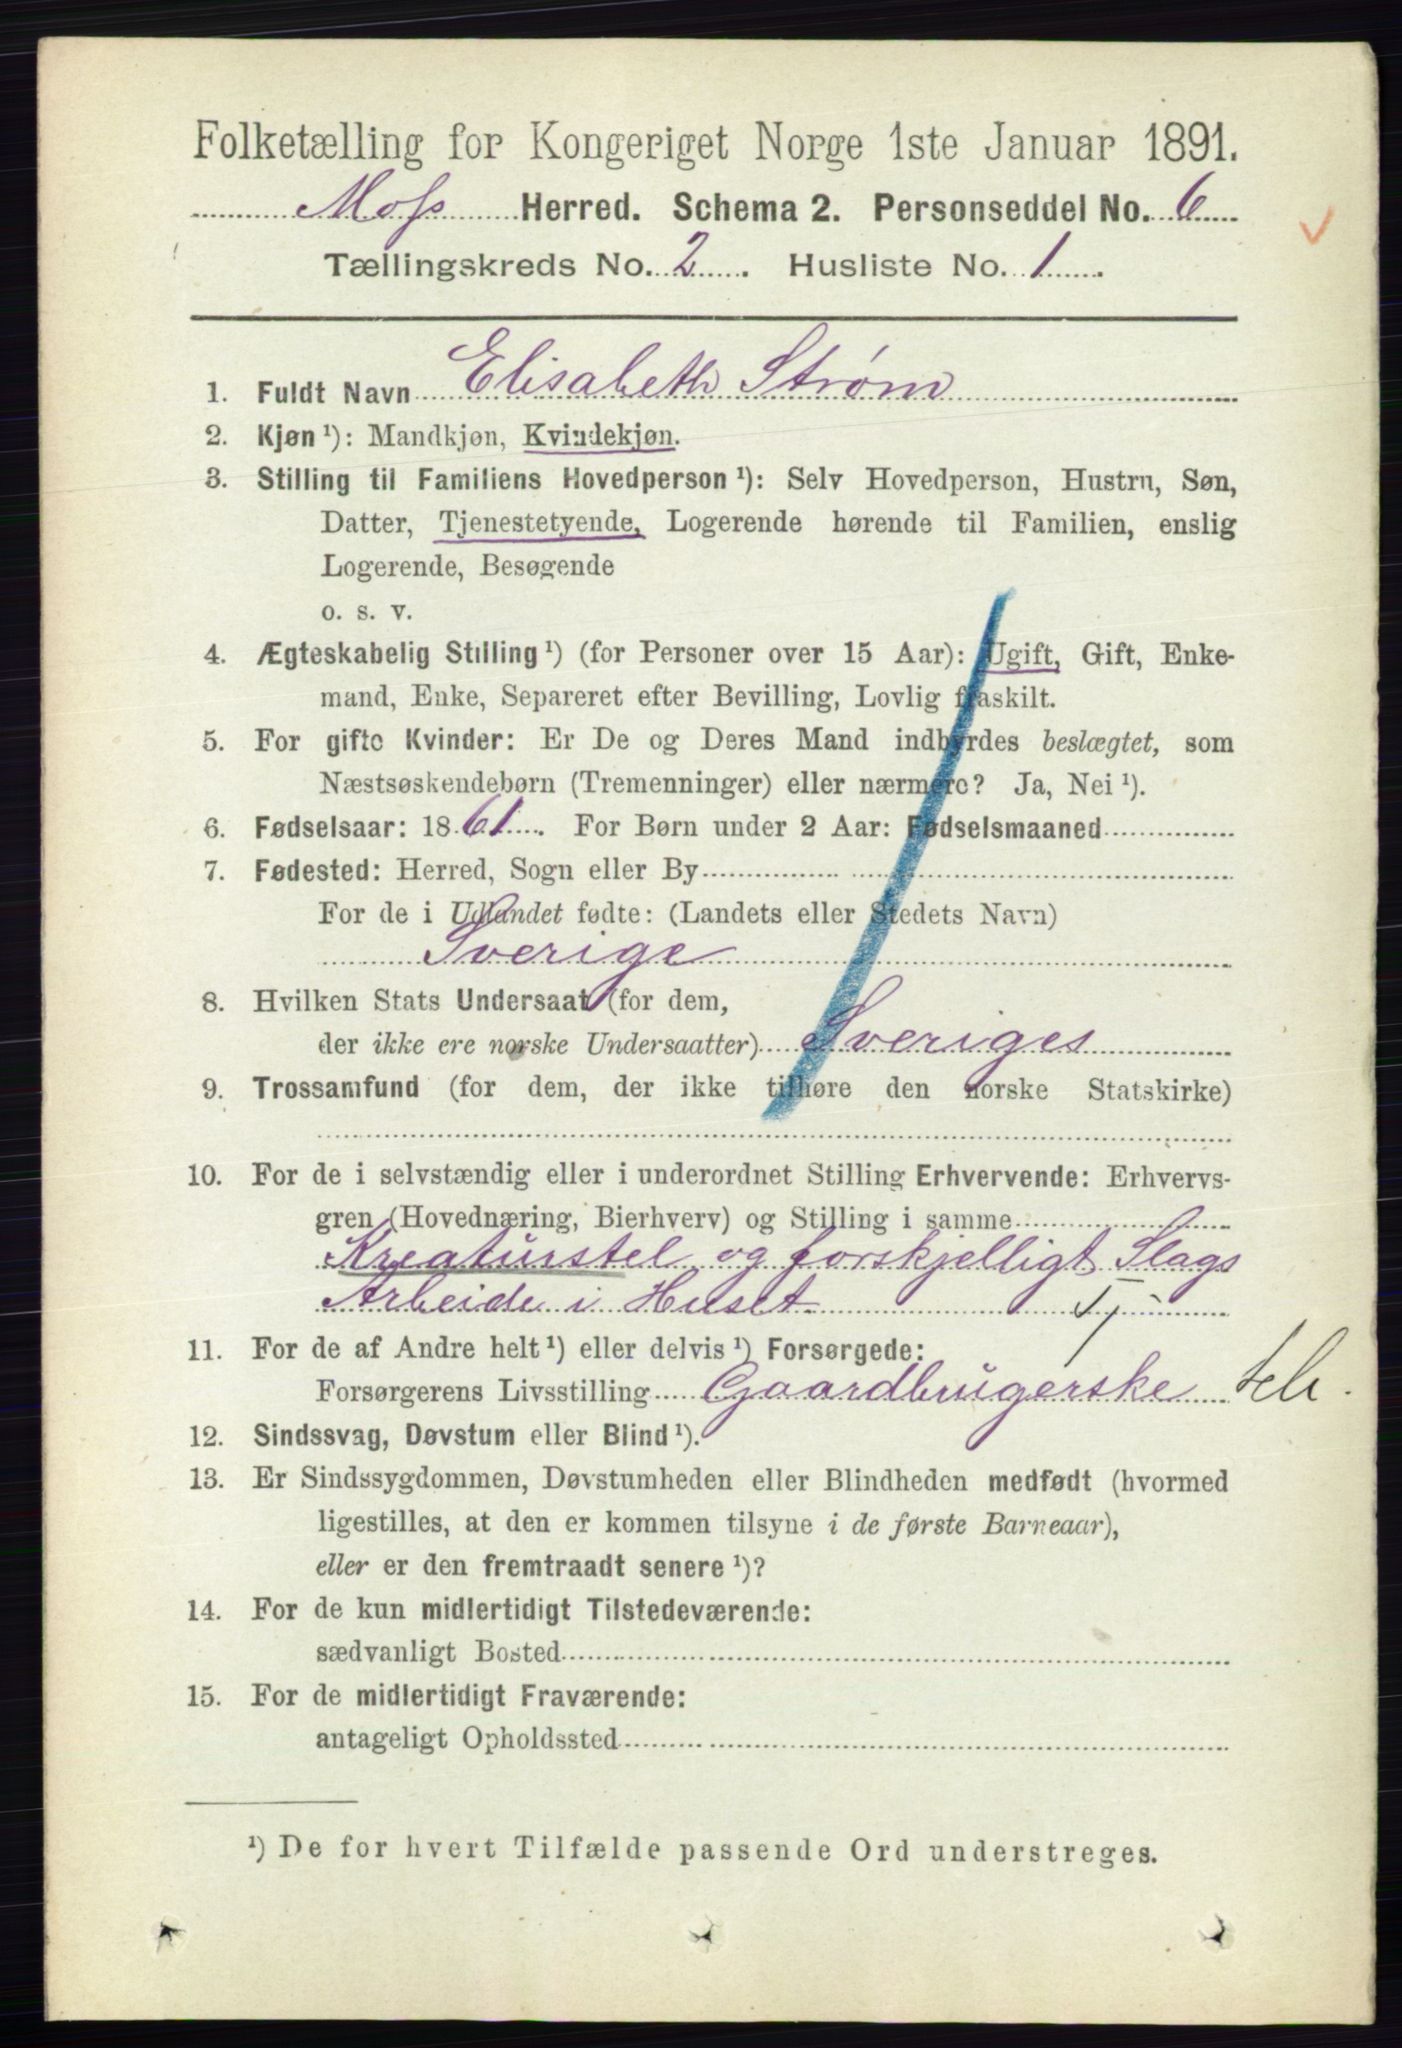 Folketælling for Kongeriget Norge 1ste Januar 1891.
Moss Herred. Schema 2. Personseddel No. 6
Tællingskreds No. 2. Husliste No. 1.
1. Fuldt Navn Elisabeth Strøm
2. Kjøn ¹): Mandkjøn, Kvindekjøn.
3. Stilling til Familiens Hovedperson ¹): Selv Hovedperson, Hustru, Søn,
Datter, Tjenestetyende, Logerende hørende til Familien, enslig
Logerende, Besøgende
o. s. v.
4. Ægteskabelig Stilling ¹) (for Personer over 15 Aar): Ugift, Gift, Enke-
mand, Enke, Separeret efter Bevilling, Lovlig fraskilt.
5. For gifte Kvinder: Er De og Deres Mand indbyrdes beslægtet, som
Næstsøskendebørn (Tremenninger) eller nærmere? Ja, Nei ¹).
6. Fødselsaar: 1861. For Børn under 2 Aar: Fødselsmaaned
7. Fødested: Herred, Sogn eller By
For de i Udlandet fødte: (Landets eller Stedets Navn)
Sverige
8. Hvilken Stats Undersaat (for dem,
der ikke ere norske Undersaatter) Sveriges
9. Trossamfund (for dem, der ikke tilhøre den norske Statskirke)
10. For de i selvstændig eller i underordnet Stilling Erhvervende: Erhvervs-
gren (Hovednæring, Bierhverv) og Stilling i samme
Kreaturstel og forskjelligt Slags
Arbeide i Huset Tj
11. For de af Andre helt ¹) eller delvis ¹) Forsørgede:
Forsørgerens Livsstilling Gaardbrugerske
12. Sindssvag, Døvstum eller Blind ¹).
13. Er Sindssygdommen, Døvstumheden eller Blindheden medfødt (hvormed
ligestilles, at den er kommen tilsyne i de første Barneaar),
eller er den fremtraadt senere ¹)?
14. For de kun midlertidigt Tilstedeværende:
sædvanligt Bosted
15. For de midlertidigt Fraværende:
antageligt Opholdssted
¹) De for hvert Tilfælde passende Ord understreges.